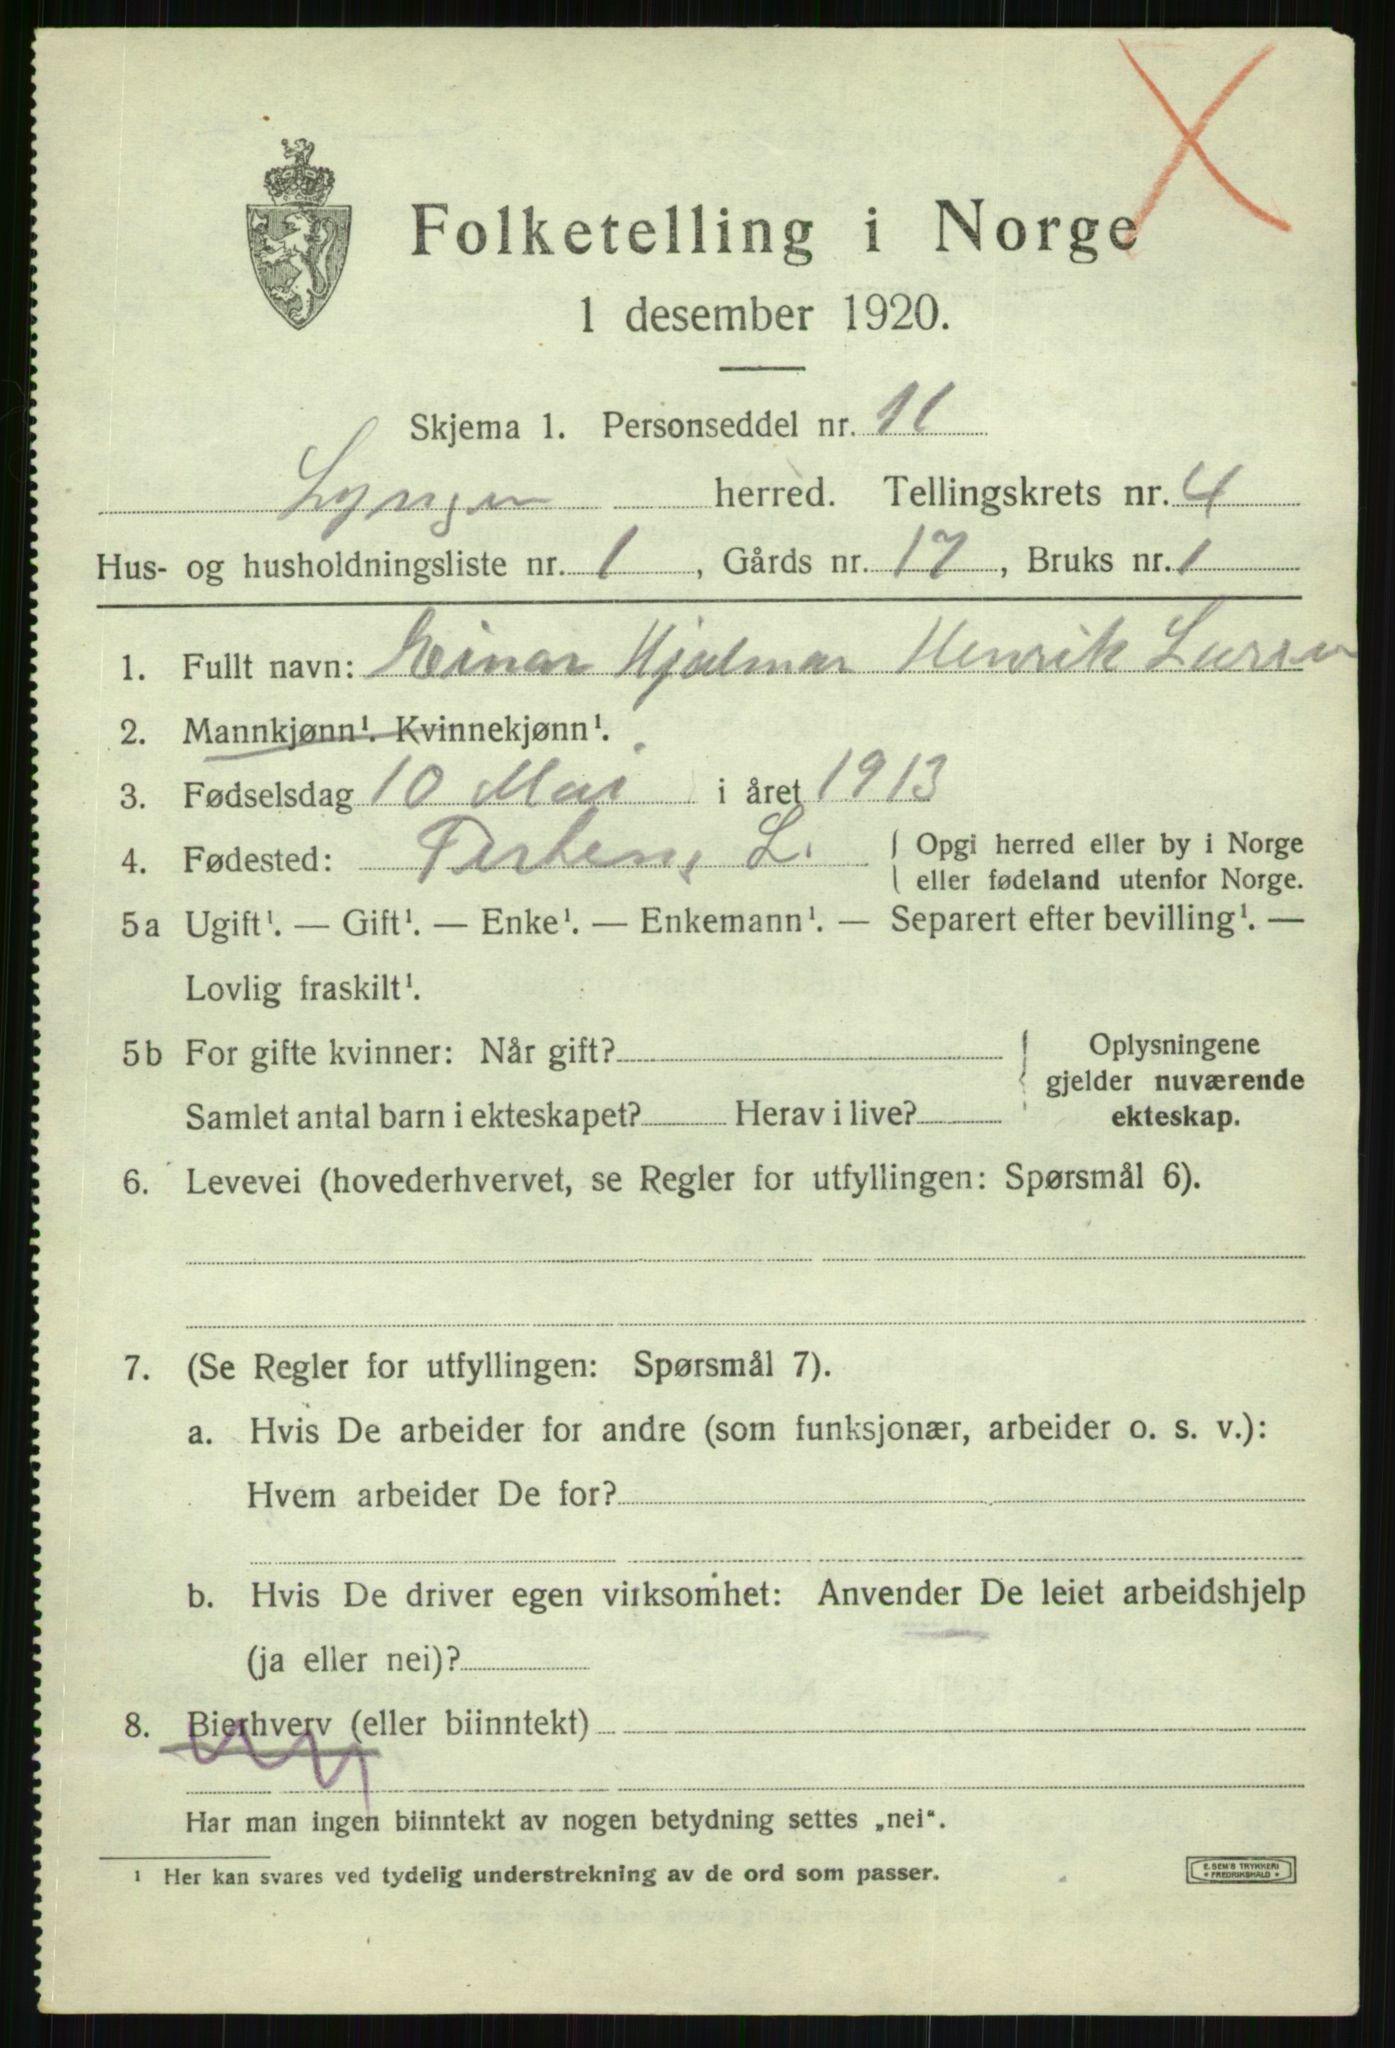 Folketelling i Norge
1 desember 1920.
Skjema 1. Personseddel nr. 11
Lyngen herred. Tellingskrets nr. 4
Hus- og husholdningsliste nr. 1, Gårds nr. 17, Bruks nr. 1
1. Fullt navn: Einar Hjalmar Henrik Larsen
2. Mannkjønn¹. Kvinnekjønn¹.
3. Fødselsdag 10 Mai i året 1913
4. Fødested: L. { Opgi herred eller by i Norge
eller fødeland utenfor Norge.
5a Ugift¹. — Gift¹. — Enke¹. — Enkemann¹. — Separert efter bevilling¹. —
Lovlig fraskilt¹.
5b For gifte kvinner: Når gift? { Oplysningene
gjelder nuværende
Samlet antal barn i ekteskapet? Herav i live? ekteskap.
6. Levevei (hovederhvervet, se Regler for utfyllingen: Spørsmål 6).
7. (Se Regler for utfyllingen: Spørsmål 7).
a. Hvis De arbeider for andre (som funksjonær, arbeider o. s. v.):
Hvem arbeider De for?
b. Hvis De driver egen virksomhet: Anvender De leiet arbeidshjelp
(ja eller nei)?
8. Bierhverv (eller biinntekt)
Har man ingen biinntekt av nogen betydning settes „nei“.
¹ Her kan svares ved tydelig understrekning av de ord som passer.
E. SEM'S TRYKKERI
FREDRIKSHALD